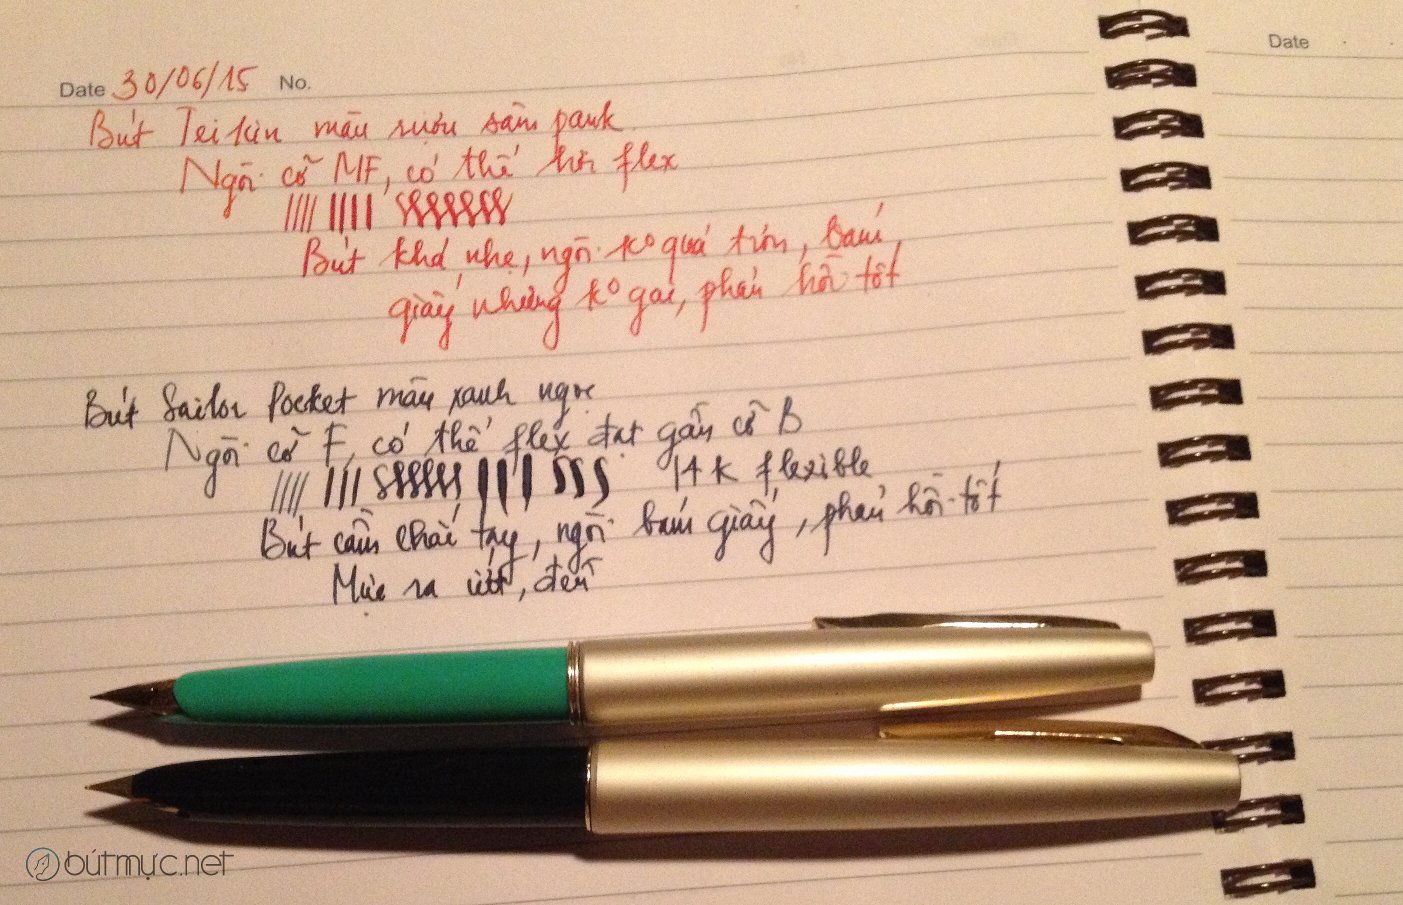 Date 30/06/15 No.
Date
Bút Teikin màu rượu sâm panh
Ngòi cỡ MF, có thể hơi flex
Bút khá nhẹ, ngòi k° quá trơn, bám
giấy nhưng k° gai, phản hồi tốt
Bút Sailor Pocket màu xanh ngọc
Ngòi cỡ F, có thể flex đạt gần cỡ B
14K flexible
Bút cầm chắc tay, ngòi bám giấy, phản hồi tốt
Mực ra ướt, đều
bútmực.net